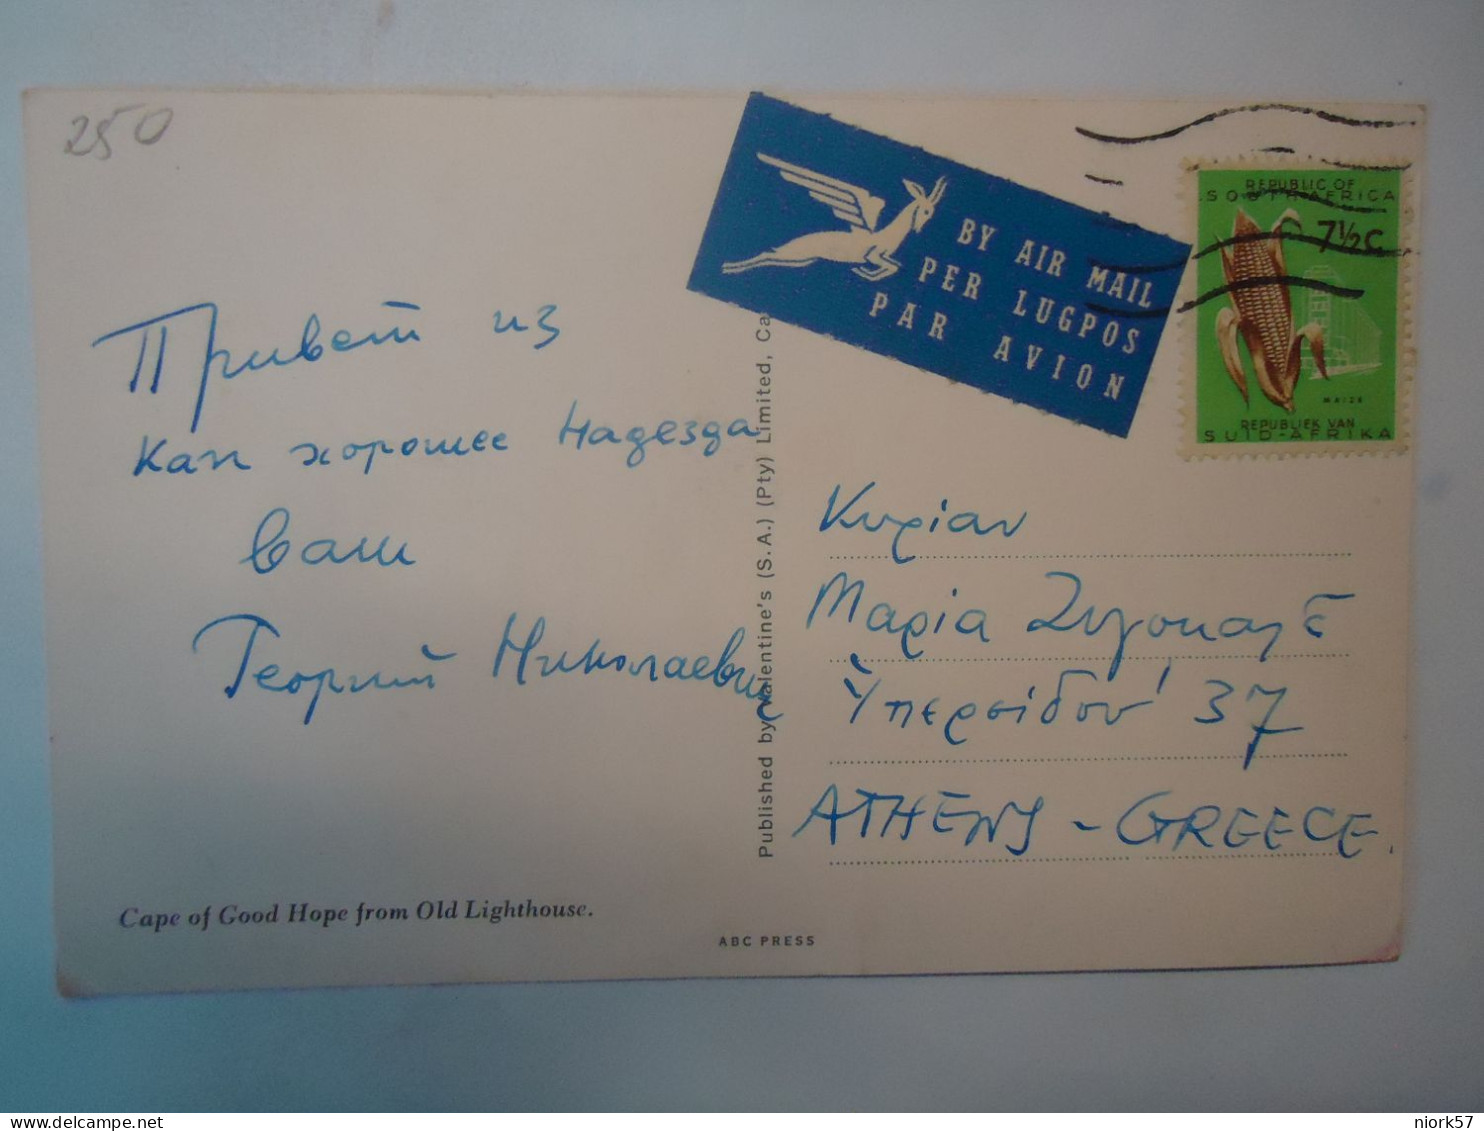 250
BY AIR MAIL
PER LUGPOS
PAR AVION
REPUBLIC OF
SOUTH AFRICA
7½c
MAIZE
REPUBLIEK VAN
SUID-AFRIKA
Привет из
Кап хорошее надезда
Ваш
Георгий Николаевич
Published by Valentine's (S.A.) (Pty) Limited, Ca
Κυρίαν
Μαρία
Ὑπερείδου 37
ATHENS - GREECE.
Cape of Good Hope from Old Lighthouse.
ABC PRESS
niork57